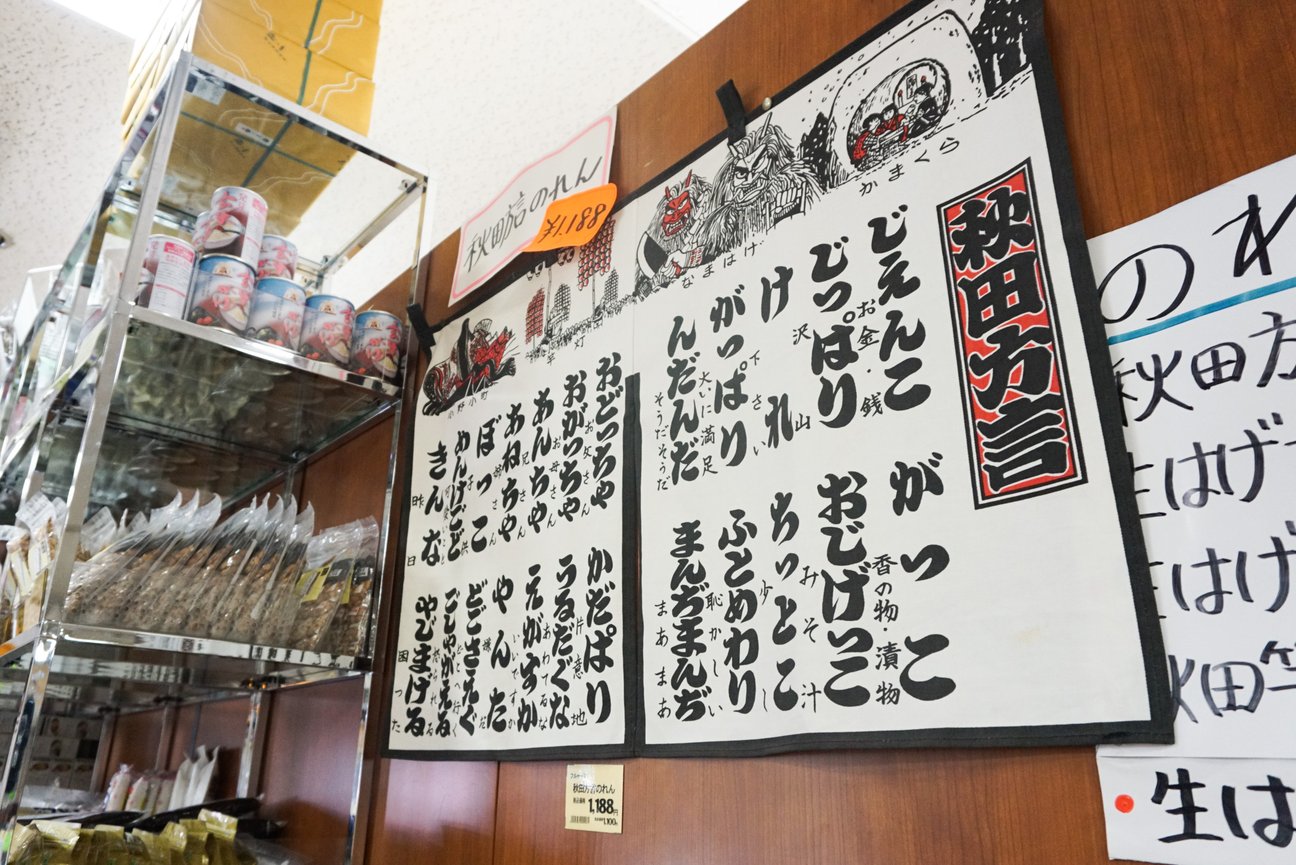 秋田方言のれん
¥1.188
かまくら
なまはげ
竿灯
小野小町
秋田方言
じぇんこ
お金・銭
がっこ
香の物・漬物
じっぱり
沢山
おじげっこ
みそ汁
けれ
下さい
ちっとこ
少し
がっぱり
大いに満足
ふとめわり
恥かしい
んだんだ
そうだそうだ
まんぢまんぢ
まあまあ
おどっちゃ
お父さん
かだぱり
片意地
おがっちゃ
お母さん
うるだぐな
あわてるな
あんちゃ
兄さん
えがすか
いいですか
あねちゃ
姉さん
やんた
嫌だ
ぼっこ
どごさえぐ
どこへ行く
めんけごど
ごしゃがえる
きんな
昨日
やじまげる
困った
秋田方言のれん
1,188円
のれ
秋田方
生はげ
生はげ
秋田竿
生は